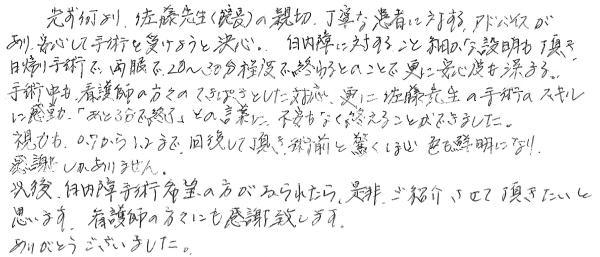 先ず何より、佐藤先生(院長)の親切、丁寧な患者に対する、アドバイスが
あり、安心して手術を受けようと決心。白内障に対すること細かな説明も頂き
日帰り手術で、両眼で、20〜30分程度で終わるとのことで更に安心度を深める。
手術中も、看護師の方々のてきぱきとした対応、更に佐藤先生の手術のスキル
に感動、「あと3分で終了」との言葉に、不安もなく終えることができました。
視力も、0.7から1.2まで、回復して頂き、術前と驚くほど色も鮮明になり、
感謝しかありません。
以後、白内障手術希望の方がみられたら、是非、ご紹介させて頂きたいと
思います。看護師の方々にも感謝致します。
ありがとうございました。